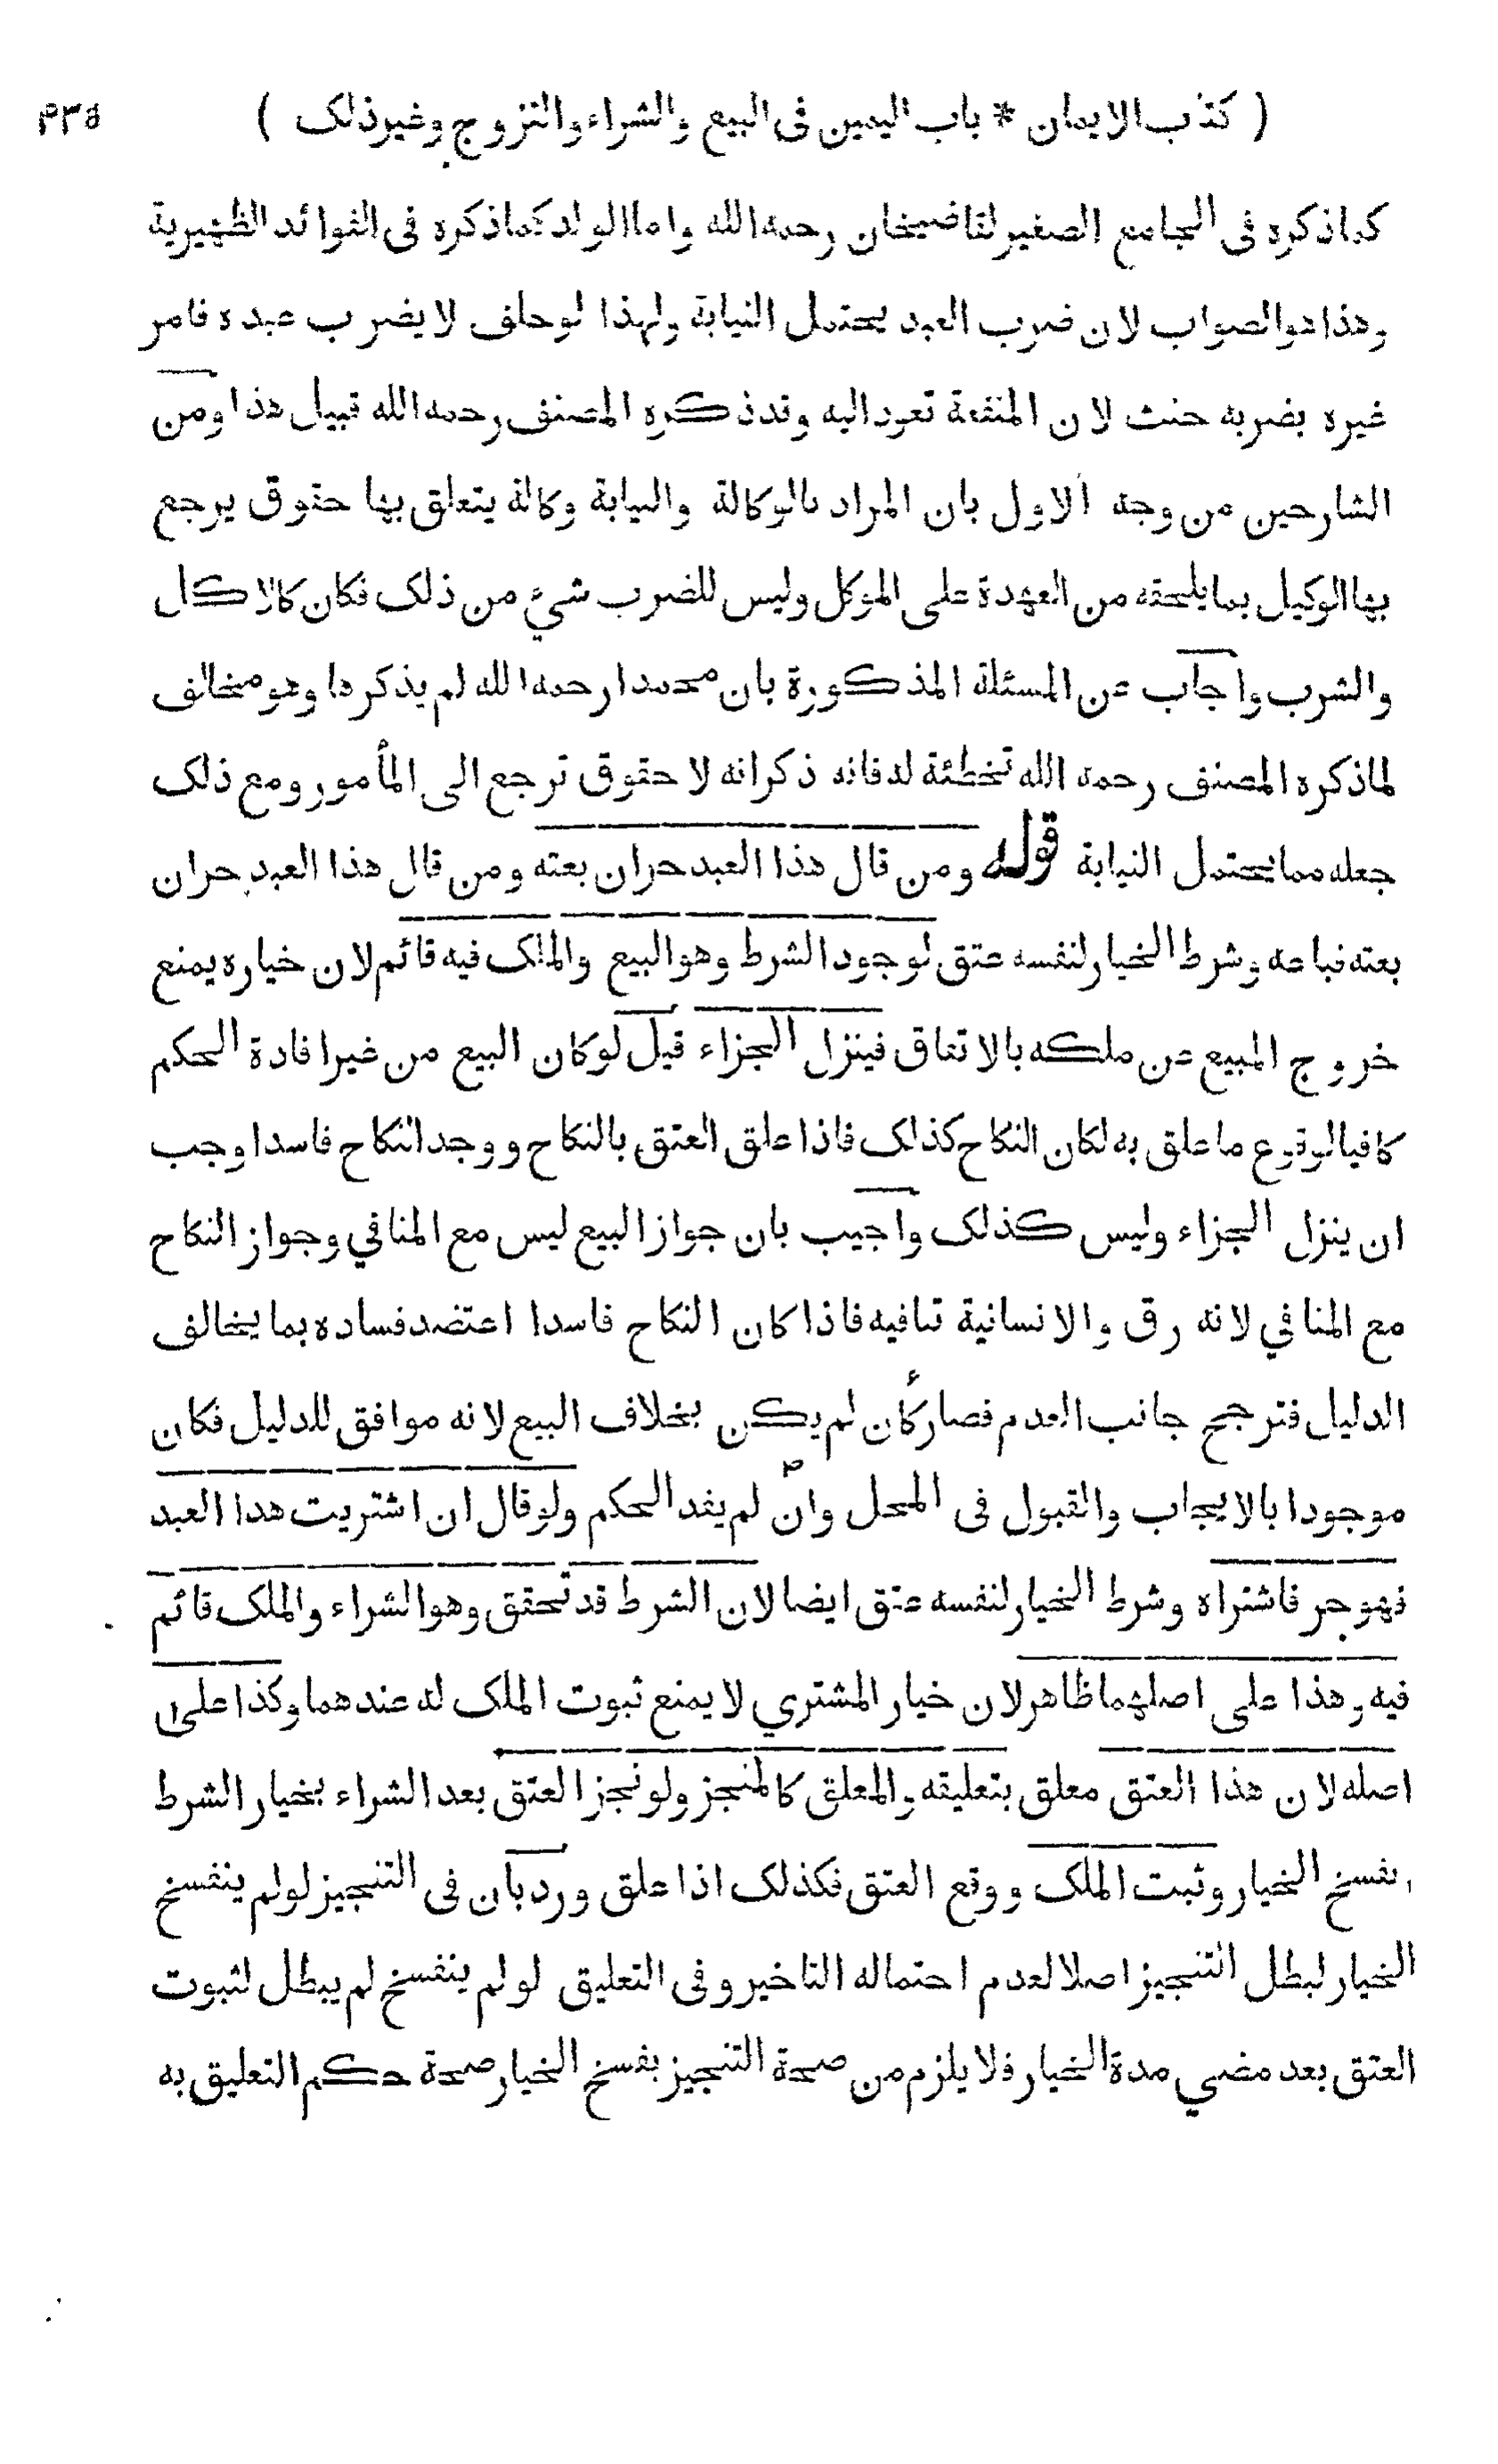 ( كتاب الايمان * باب اليمين فى البيع والشراء والتزوج وغير ذلك ) ٥٣٩
كما ذكره فى الجامع الصغير لقاضيخان رحمه الله واما الولد كما ذكره فى الفوائد الظهيرية
وهذا هو الصواب لان ضرب العبد يحتمل النيابة ولهذا لو حلف لا يضرب عبده فامر
غيره بضربه حنث لان المنفعة تعود اليه وقد ذكره المصنف رحمه الله قبيل هذا ومن
الشارحين من وجه الاول بان المراد بالوكالة والنيابة وكالة يتعلق بها حقوق يرجع
بها الوكيل بما يلحقه من العهدة على الموكل وليس للضرب شيء من ذلك فكان كالاكل
والشرب واجاب عن المسئلة المذكورة بان محمدا رحمه الله لم يذكرها وهو مخالف
لما ذكره المصنف رحمه الله تخطئة له فانه ذكر انه لا حقوق ترجع الى المأمور ومع ذلك
جعله مما يحتمل النيابة قوله ومن قال هذا العبد حر ان بعته ومن قال هذا العبد حر ان
بعته فباعه وشرط الخيار لنفسه عتق لوجود الشرط وهو البيع والملك فيه قائم لان خياره يمنع
خروج المبيع عن ملكه بالاتفاق فينزل الجزاء قيل لو كان البيع من غير افادة الحكم
كافيا لوقوع ما علق به لكان النكاح كذلك فاذا علق العتق بالنكاح ووجد النكاح فاسدا وجب
ان ينزل الجزاء وليس كذلك واجيب بان جواز البيع ليس مع المنافي وجواز النكاح
مع المنافي لانه رق والانسانية تنافيه فاذا كان النكاح فاسدا اعتضد فساده بما يخالف
الدليل فترجح جانب العدم فصار كأن لم يكن بخلاف البيع لانه موافق للدليل فكان
موجودا بالايجاب والقبول فى المحل وان لم يفد الحكم ولو قال ان اشتريت هذا العبد
فهو حر فاشتراه وشرط الخيار لنفسه عتق ايضا لان الشرط قد تحقق وهو الشراء والملك قائم
فيه وهذا على اصلهما ظاهر لان خيار المشتري لا يمنع ثبوت الملك له عندهما وكذا على
اصله لان هذا العتق معلق بتعليقه والمعلق كالمنجز ولو نجز العتق بعد الشراء بخيار الشرط
انفسخ الخيار وثبت الملك ووقع العتق فكذلك اذا علق ورد بأن فى التنجيز لو لم ينفسخ
الخيار لبطل التنجيز اصلا لعدم احتماله التاخير وفى التعليق لو لم ينفسخ لم يبطل لثبوت
العتق بعد مضي مدة الخيار فلا يلزم من صحة التنجيز بفسخ الخيار صحة حكم التعليق به